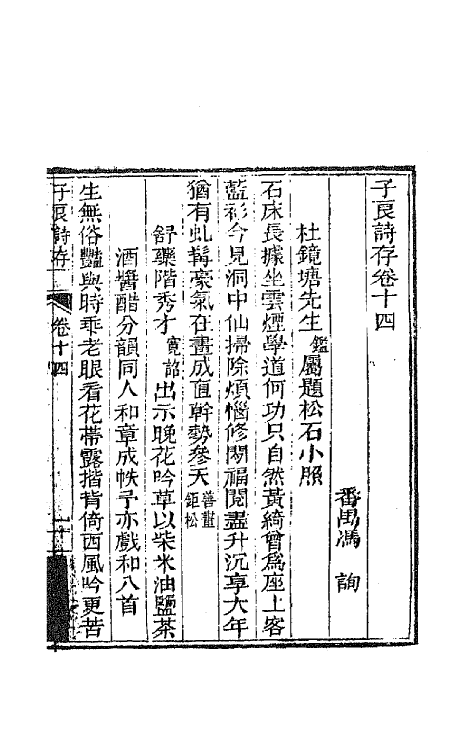 子良詩存卷十四
番禺馮詢
杜鏡塘先生鑑屬題松石小照
石床長據坐雲煙學道何功只自然黃綺曾爲座上客
藍衫今見洞中仙掃除煩惱修閒福閱盡升沉享大年
猶有虬髯豪氣在畫成直幹勢參天善畫鉅松
舒藥階秀才寬韶出示晚花吟草以柴米油鹽茶
酒醬醋分韻同人和章成帙予亦戲和八首
生無俗豔與時乖老眼看花帶露揩背倚西風吟更苦
子良詩存
卷十四